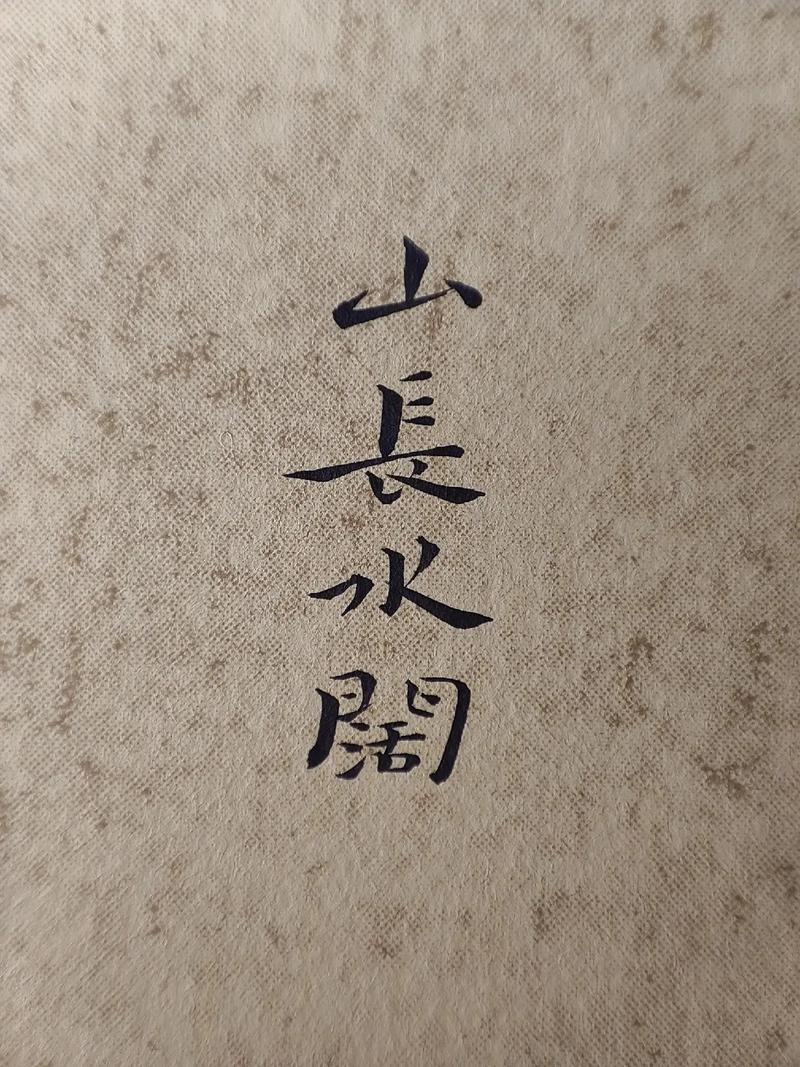 山長水闊